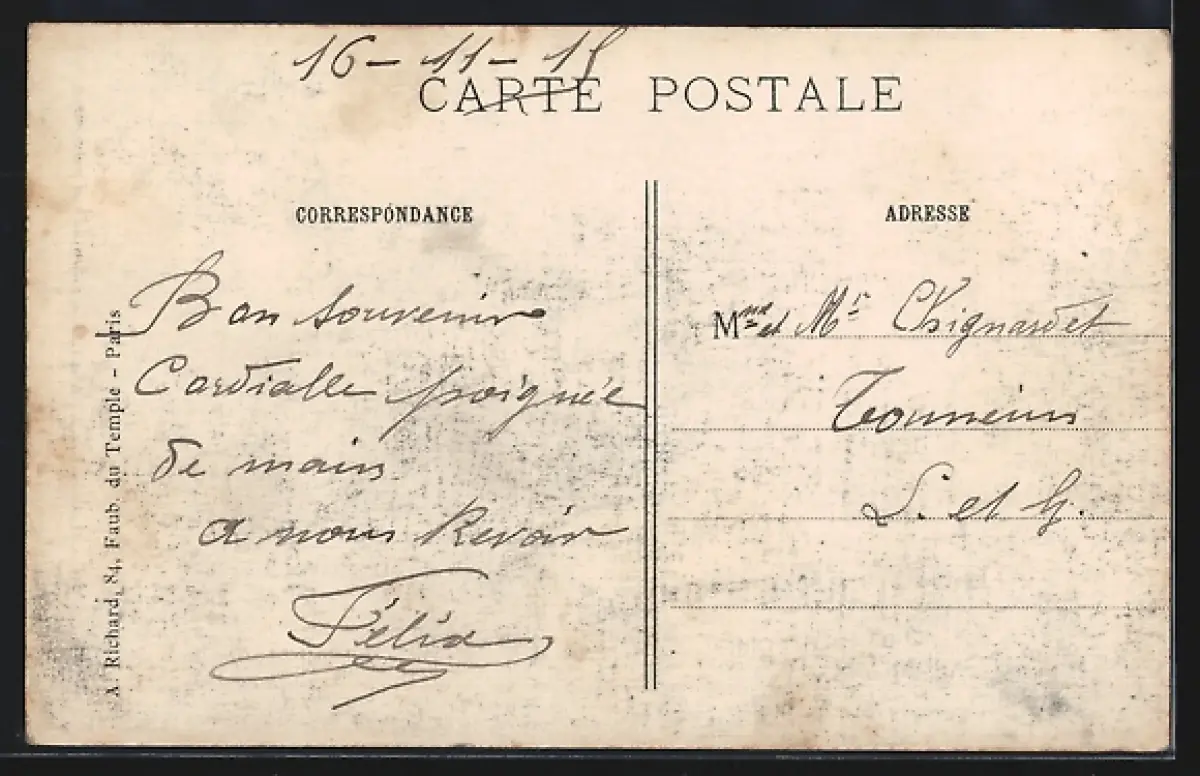 16-11-15
CARTE POSTALE
CORRESPONDANCE
Bon souvenir
Cordialle poignée
de main
a nous Revoir
Félix
ADRESSE
Mme et Mr Chignardet
Tonneins
L. et G.
A. Richard, 84, Faub. du Temple - Paris